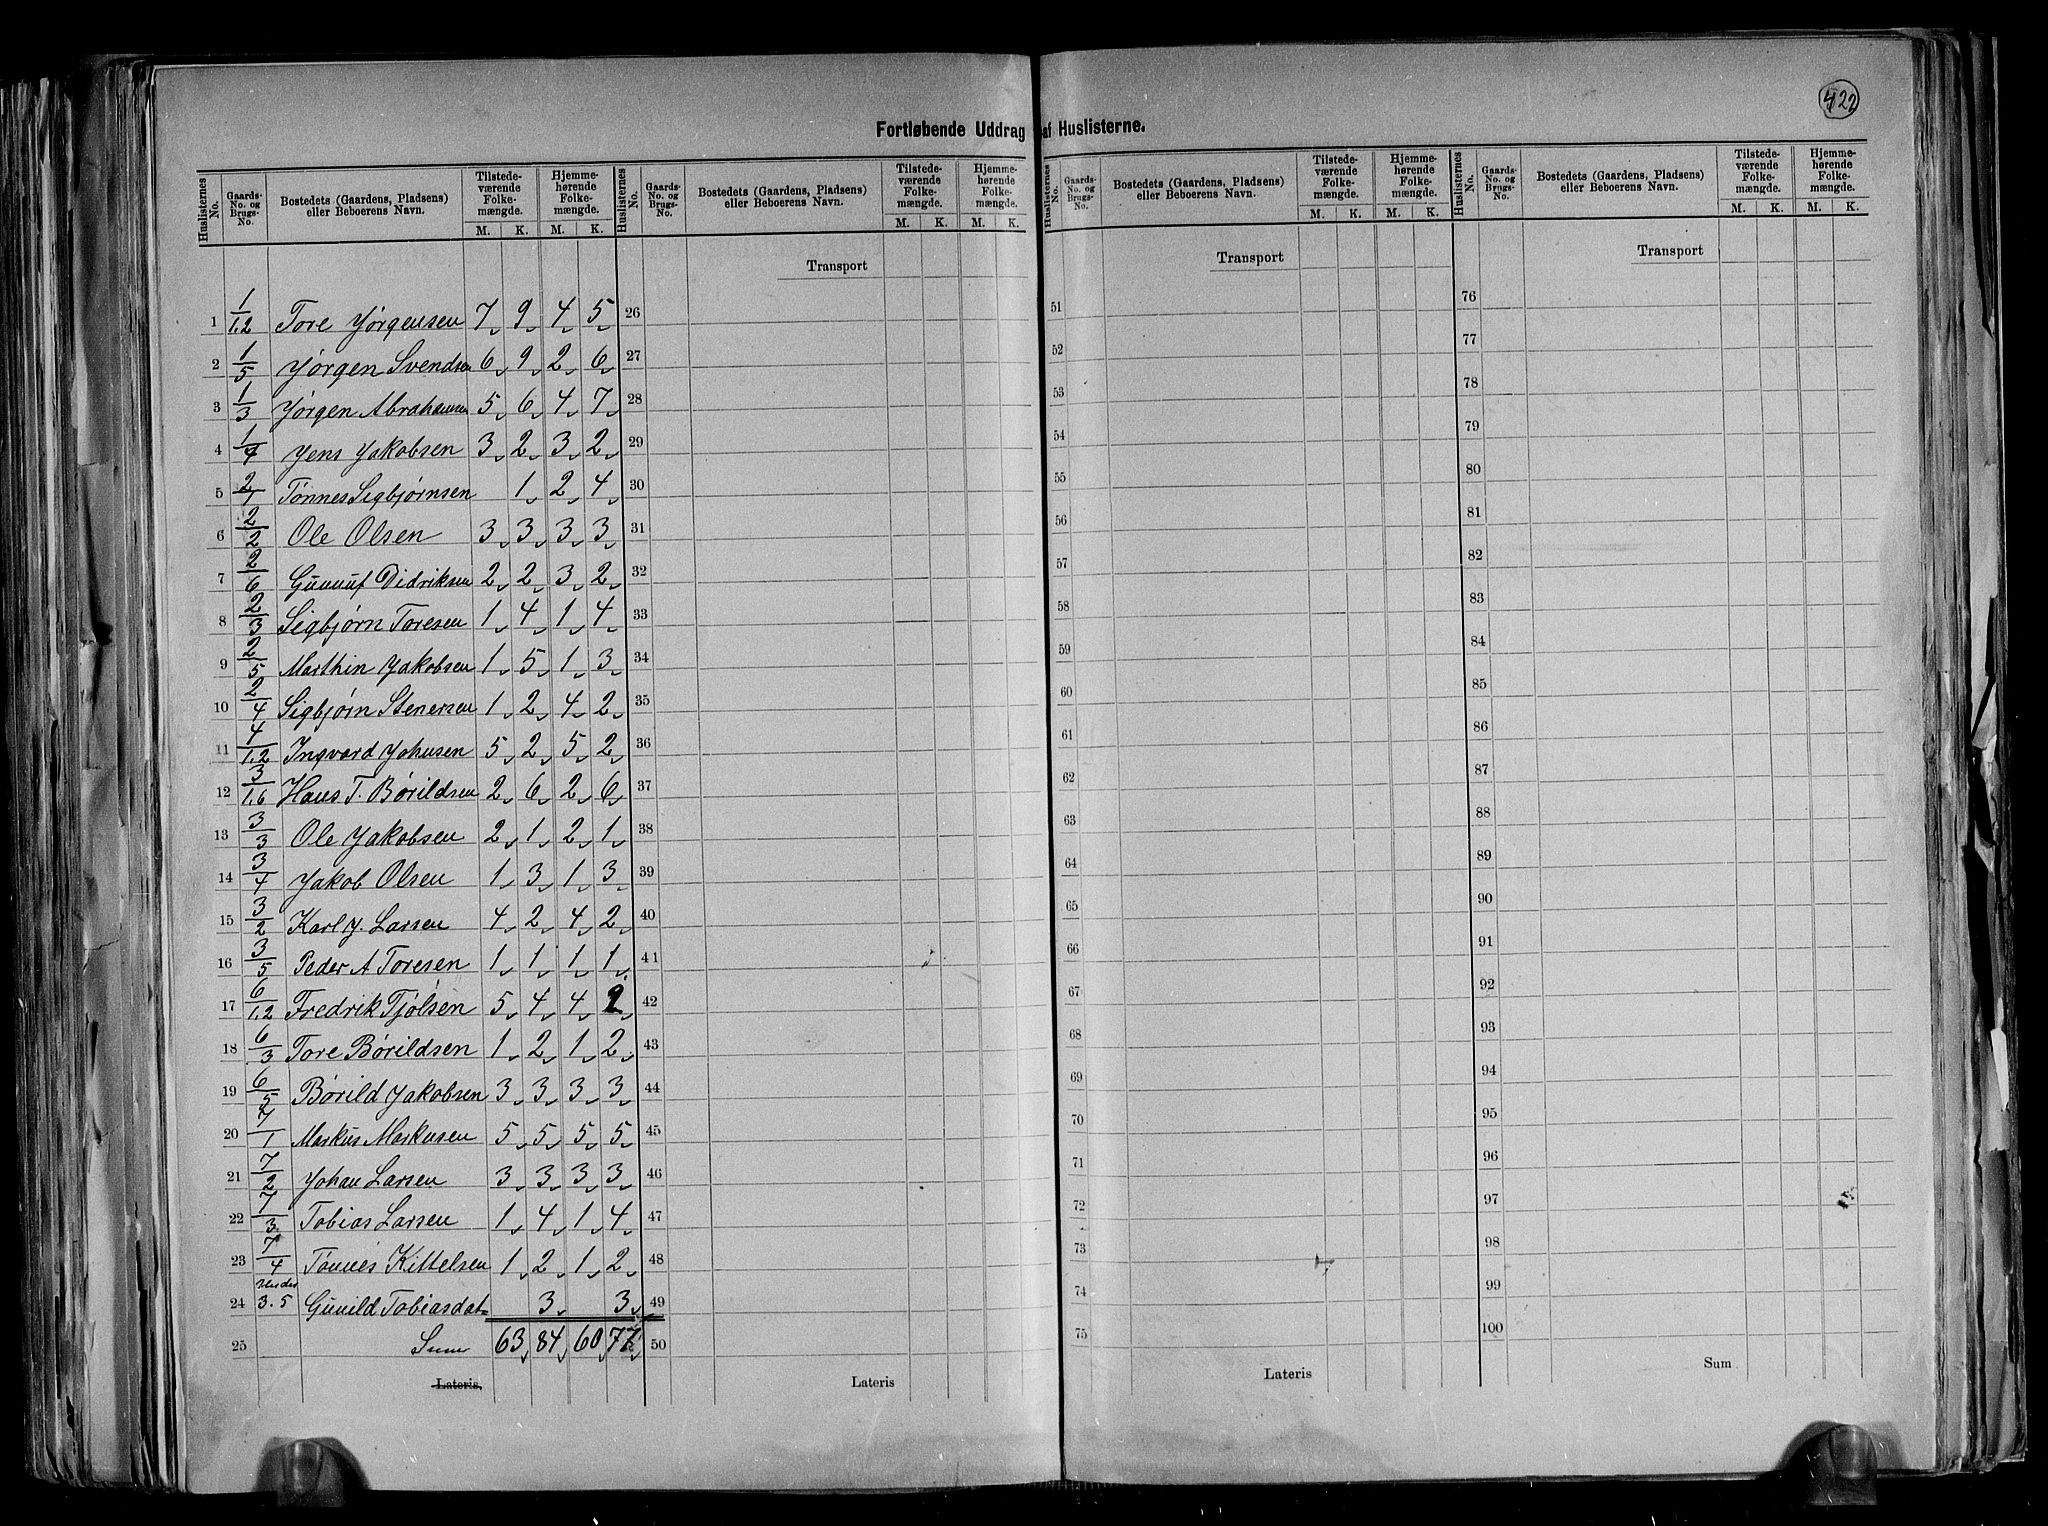 422
Fortløbende Uddrag af Huslisterne.
Huslisternes No. | Gaards-No. og Brugs-No. | Bostedets (Gaardens, Pladsens) eller Beboerens Navn. | Tilstedeværende Folkemængde. M. K. | Hjemmehørende Folkemængde. M. K.
Transport
Transport
Transport
1 1/1.2 Tore Jørgensen 7 9 4 5
2 1/5 Jørgen Svendsen 6 9 2 6
3 1/3 Jørgen Abrahamsen 5 6 4 7
4 1/4 Jens Jakobsen 3 2 3 2
5 2/1 Tønnes Sigbjørnsen 1 2 4
6 2/2 Ole Olsen 3 3 3 3
7 2/6 Gunnuf Didriksen 2 2 3 2
8 2/3 Sigbjørn Toresen 1 4 1 4
9 2/5 Marthin Jakobsen 1 5 1 3
10 2/4 Sigbjørn Stenersen 1 2 4 2
11 4/1.2 Ingvard Johnsen 5 2 5 2
12 3/1.6 Hans T. Børildsen 2 6 2 6
13 3/3 Ole Jakobsen 2 1 2 1
14 3/4 Jakob Olsen 1 3 1 3
15 3/2 Karl J. Larsen 4 2 4 2
16 3/5 Peder A Toresen 1 1 1 1
17 6/1.2 Fredrik Tjølsen 5 4 4 2
18 6/3 Tore Børildsen 1 2 1 2
19 6/5 Børild Jakobsen 3 3 3 3
20 7/1 Markus Markusen 5 5 5 5
21 7/2 Johan Larsen 3 3 3 3
22 7/3 Tobias Larsen 1 4 1 4
23 7/4 Tønnes Kittelsen 1 2 1 2
24 Under 3.5 Gunild Tobiasdat 3 3
25 Sum 63 84 60 77
Lateris.
26
27
28
29
30
31
32
33
34
35
36
37
38
39
40
41
42
43
44
45
46
47
48
49
50
Lateris
51
52
53
54
55
56
57
58
59
60
61
62
63
64
65
66
67
68
69
70
71
72
73
74
75
Lateris
76
77
78
79
80
81
82
83
84
85
86
87
88
89
90
91
92
93
94
95
96
97
98
99
100
Sum